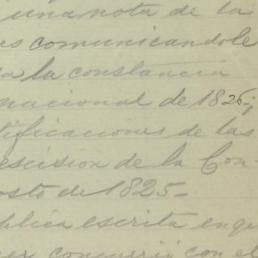 una nota de la
es comunicandole
a la constancia
nacional de 1826;
tificaciones de las
escision de la Con-
osto de 1825-
blica escrita en qu
er concurrió con el